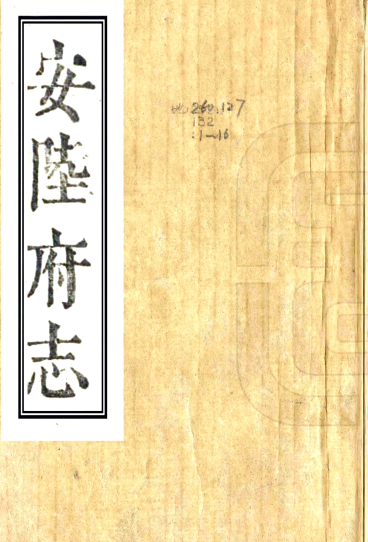 安陸府志
地 260.127
132
:1-16